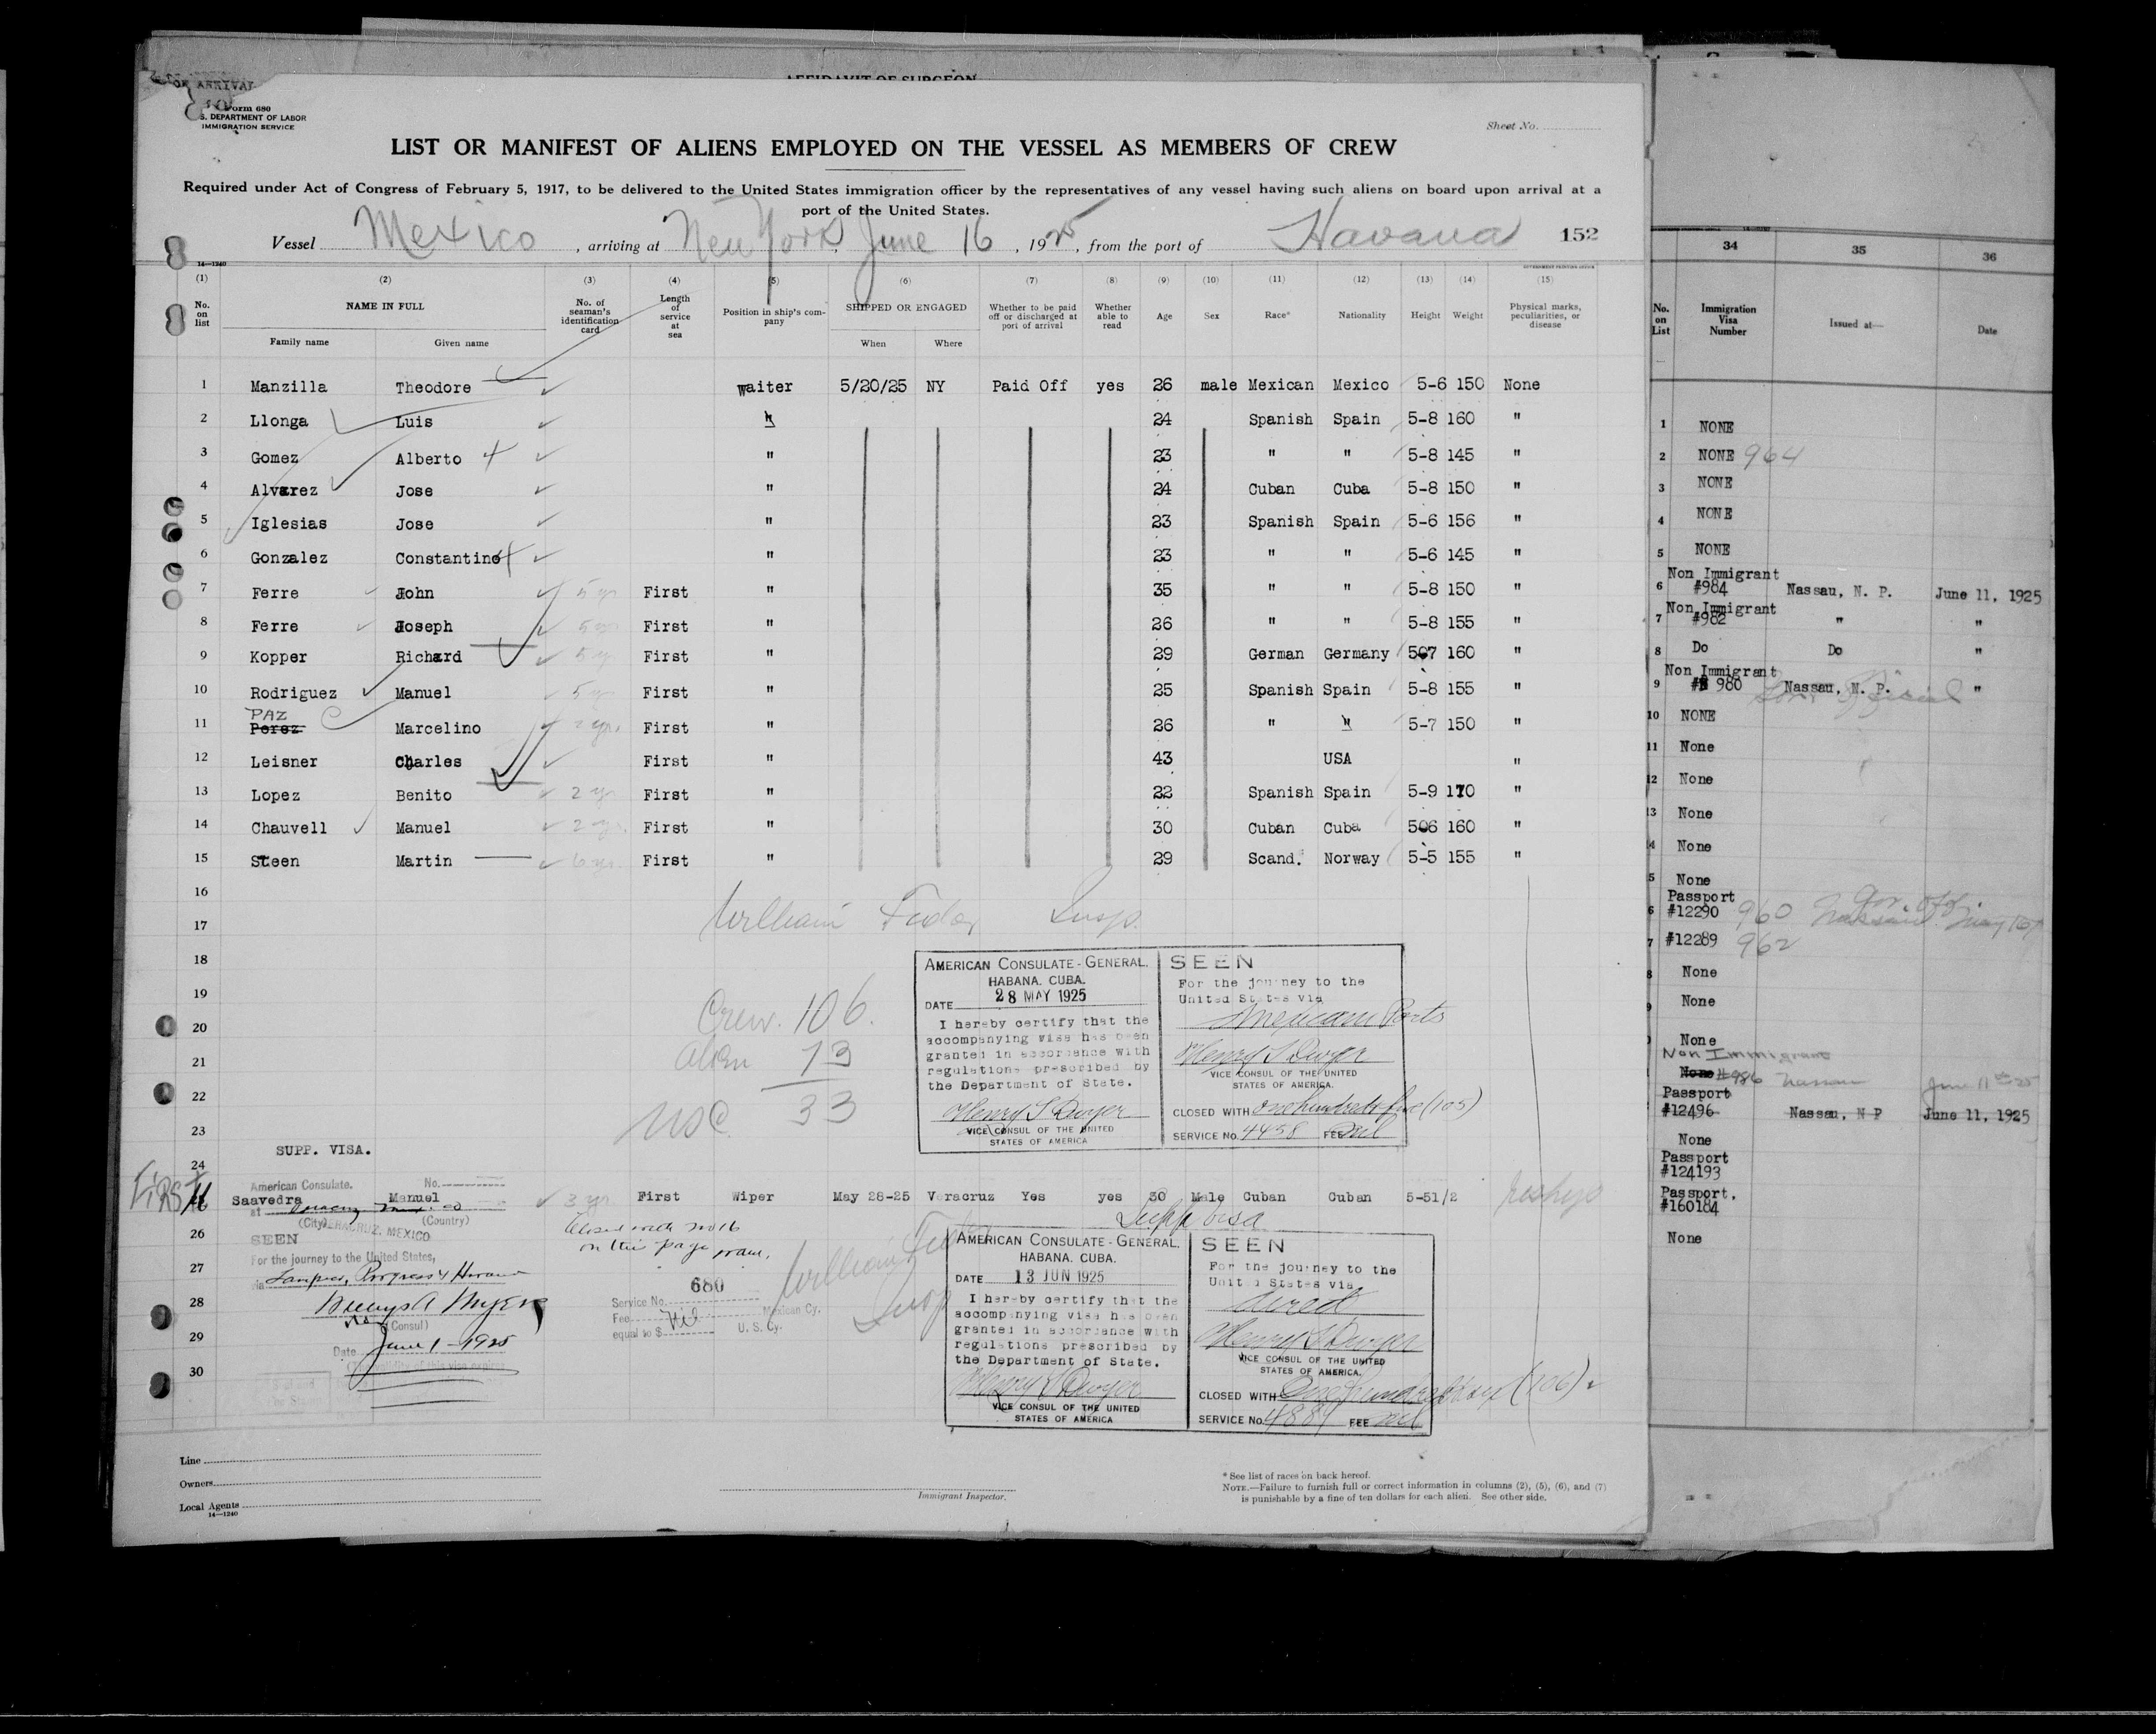 AFFIDAVIT OF SURGEON
Form 680
S. DEPARTMENT OF LABOR
IMMIGRATION SERVICE
Sheet No.
LIST OR MANIFEST OF ALIENS EMPLOYED ON THE VESSEL AS MEMBERS OF CREW
Required under Act of Congress of February 5, 1917, to be delivered to the United States immigration officer by the representatives of any vessel having such aliens on board upon arrival at a
port of the United States.
Vessel Mexico, arriving at New York, June 16, 1925, from the port of Havana 152
14—1240
(1) (2) (3) (4) (5) (6) (7) (8) (9) (10) (11) (12) (13) (14) (15)
No. on list NAME IN FULL No. of seaman's identification card Length of service at sea Position in ship's company SHIPPED OR ENGAGED Whether to be paid off or discharged at port of arrival Whether able to read Age Sex Race* Nationality Height Weight Physical marks, peculiarities, or disease
Family name Given name When Where
1 Manzilla Theodore waiter 5/20/25 NY Paid Off yes 26 male Mexican Mexico 5-6 150 None
2 Llonga Luis " 24 Spanish Spain 5-8 160 "
3 Gomez Alberto " 23 " " 5-8 145 "
4 Alvarez Jose " 24 Cuban Cuba 5-8 150 "
5 Iglesias Jose " 23 Spanish Spain 5-6 156 "
6 Gonzalez Constantino " 23 " " 5-6 145 "
7 Ferre John 5 yr First " 35 " " 5-8 150 "
8 Ferre Joseph 5 yr First " 26 " " 5-8 155 "
9 Kopper Richard 5 y First " 29 German Germany 507 160 "
10 Rodriguez Manuel 5 y First " 25 Spanish Spain 5-8 155 "
PAZ
11 Perez Marcelino 2 yrs First " 26 " " 5-7 150 "
12 Leisner Charles First " 43 USA "
13 Lopez Benito 2 yr First " 22 Spanish Spain 5-9 170 "
14 Chauvell Manuel 2 yr. First " 30 Cuban Cuba 506 160 "
15 Steen Martin 6 yr First " 29 Scand. Norway 5-5 155 "
16
17 William Insp.
18
19
20
21
22
23
24
Crew. 106.
Alien 73
USC. 33
AMERICAN CONSULATE-GENERAL.
HABANA. CUBA.
DATE 28 MAY 1925
I hereby certify that the
accompanying visa has been
granted in accordance with
regulations prescribed by
the Department of State.
Henry S Dwyer
VICE CONSUL OF THE UNITED
STATES OF AMERICA
SEEN
For the journey to the
United States via
Mexican Ports
Henry S Dwyer
VICE CONSUL OF THE UNITED
STATES OF AMERICA.
CLOSED WITH One hundred five (105)
SERVICE No. 4438 FEE nil
SUPP. VISA.
FIRST 16 Saavedra Manuel 3 yr First Wiper May 28-25 Veracruz Yes yes 30 Male Cuban Cuban 5-51/2
American Consulate. No.
at Veracruz Mex.
(City) (Country)
VERACRUZ, MEXICO
SEEN
For the journey to the United States,
via Tampico, Progreso & Havana
(Consul)
Date June 1 - 1925
Closed with no 16
on this page
26
27
28
29
30
Service No. 680
Fee Nil Mexican Cy.
equal to $ U. S. Cy.
William
Insp
Supp Visa
AMERICAN CONSULATE-GENERAL.
HABANA. CUBA.
DATE 13 JUN 1925
I hereby certify that the
accompanying visa has been
granted in accordance with
regulations prescribed by
the Department of State.
Henry S Dwyer
VICE CONSUL OF THE UNITED
STATES OF AMERICA
SEEN
For the journey to the
United States via
direct
Henry S Dwyer
VICE CONSUL OF THE UNITED
STATES OF AMERICA.
CLOSED WITH One hundred six (106)
SERVICE No. 4884 FEE nil
Line
Owners
Local Agents
14—1240
Immigrant Inspector.
* See list of races on back hereof.
NOTE.—Failure to furnish full or correct information in columns (2), (5), (6), and (7)
is punishable by a fine of ten dollars for each alien. See other side.
34 35 36
No. on List Immigration Visa Number Issued at— Date
1 NONE
2 NONE 964
3 NONE
4 NONE
5 NONE
6 Non Immigrant #984 Nassau, N. P. June 11, 1925
7 Non Immigrant #982 " "
8 Do Do "
9 Non Immigrant # 980 Nassau, N. P. "
10 NONE
11 None
12 None
13 None
4 None
5 None
6 Passport #12290 960 Nassau
7 #12289 962
8 None
9 None
None
Non Immigrant
None #986 Nassau June 11th 25
Passport
#12496 Nassau, N P June 11, 1925
None
Passport
#124193
Passport.
#160184
None